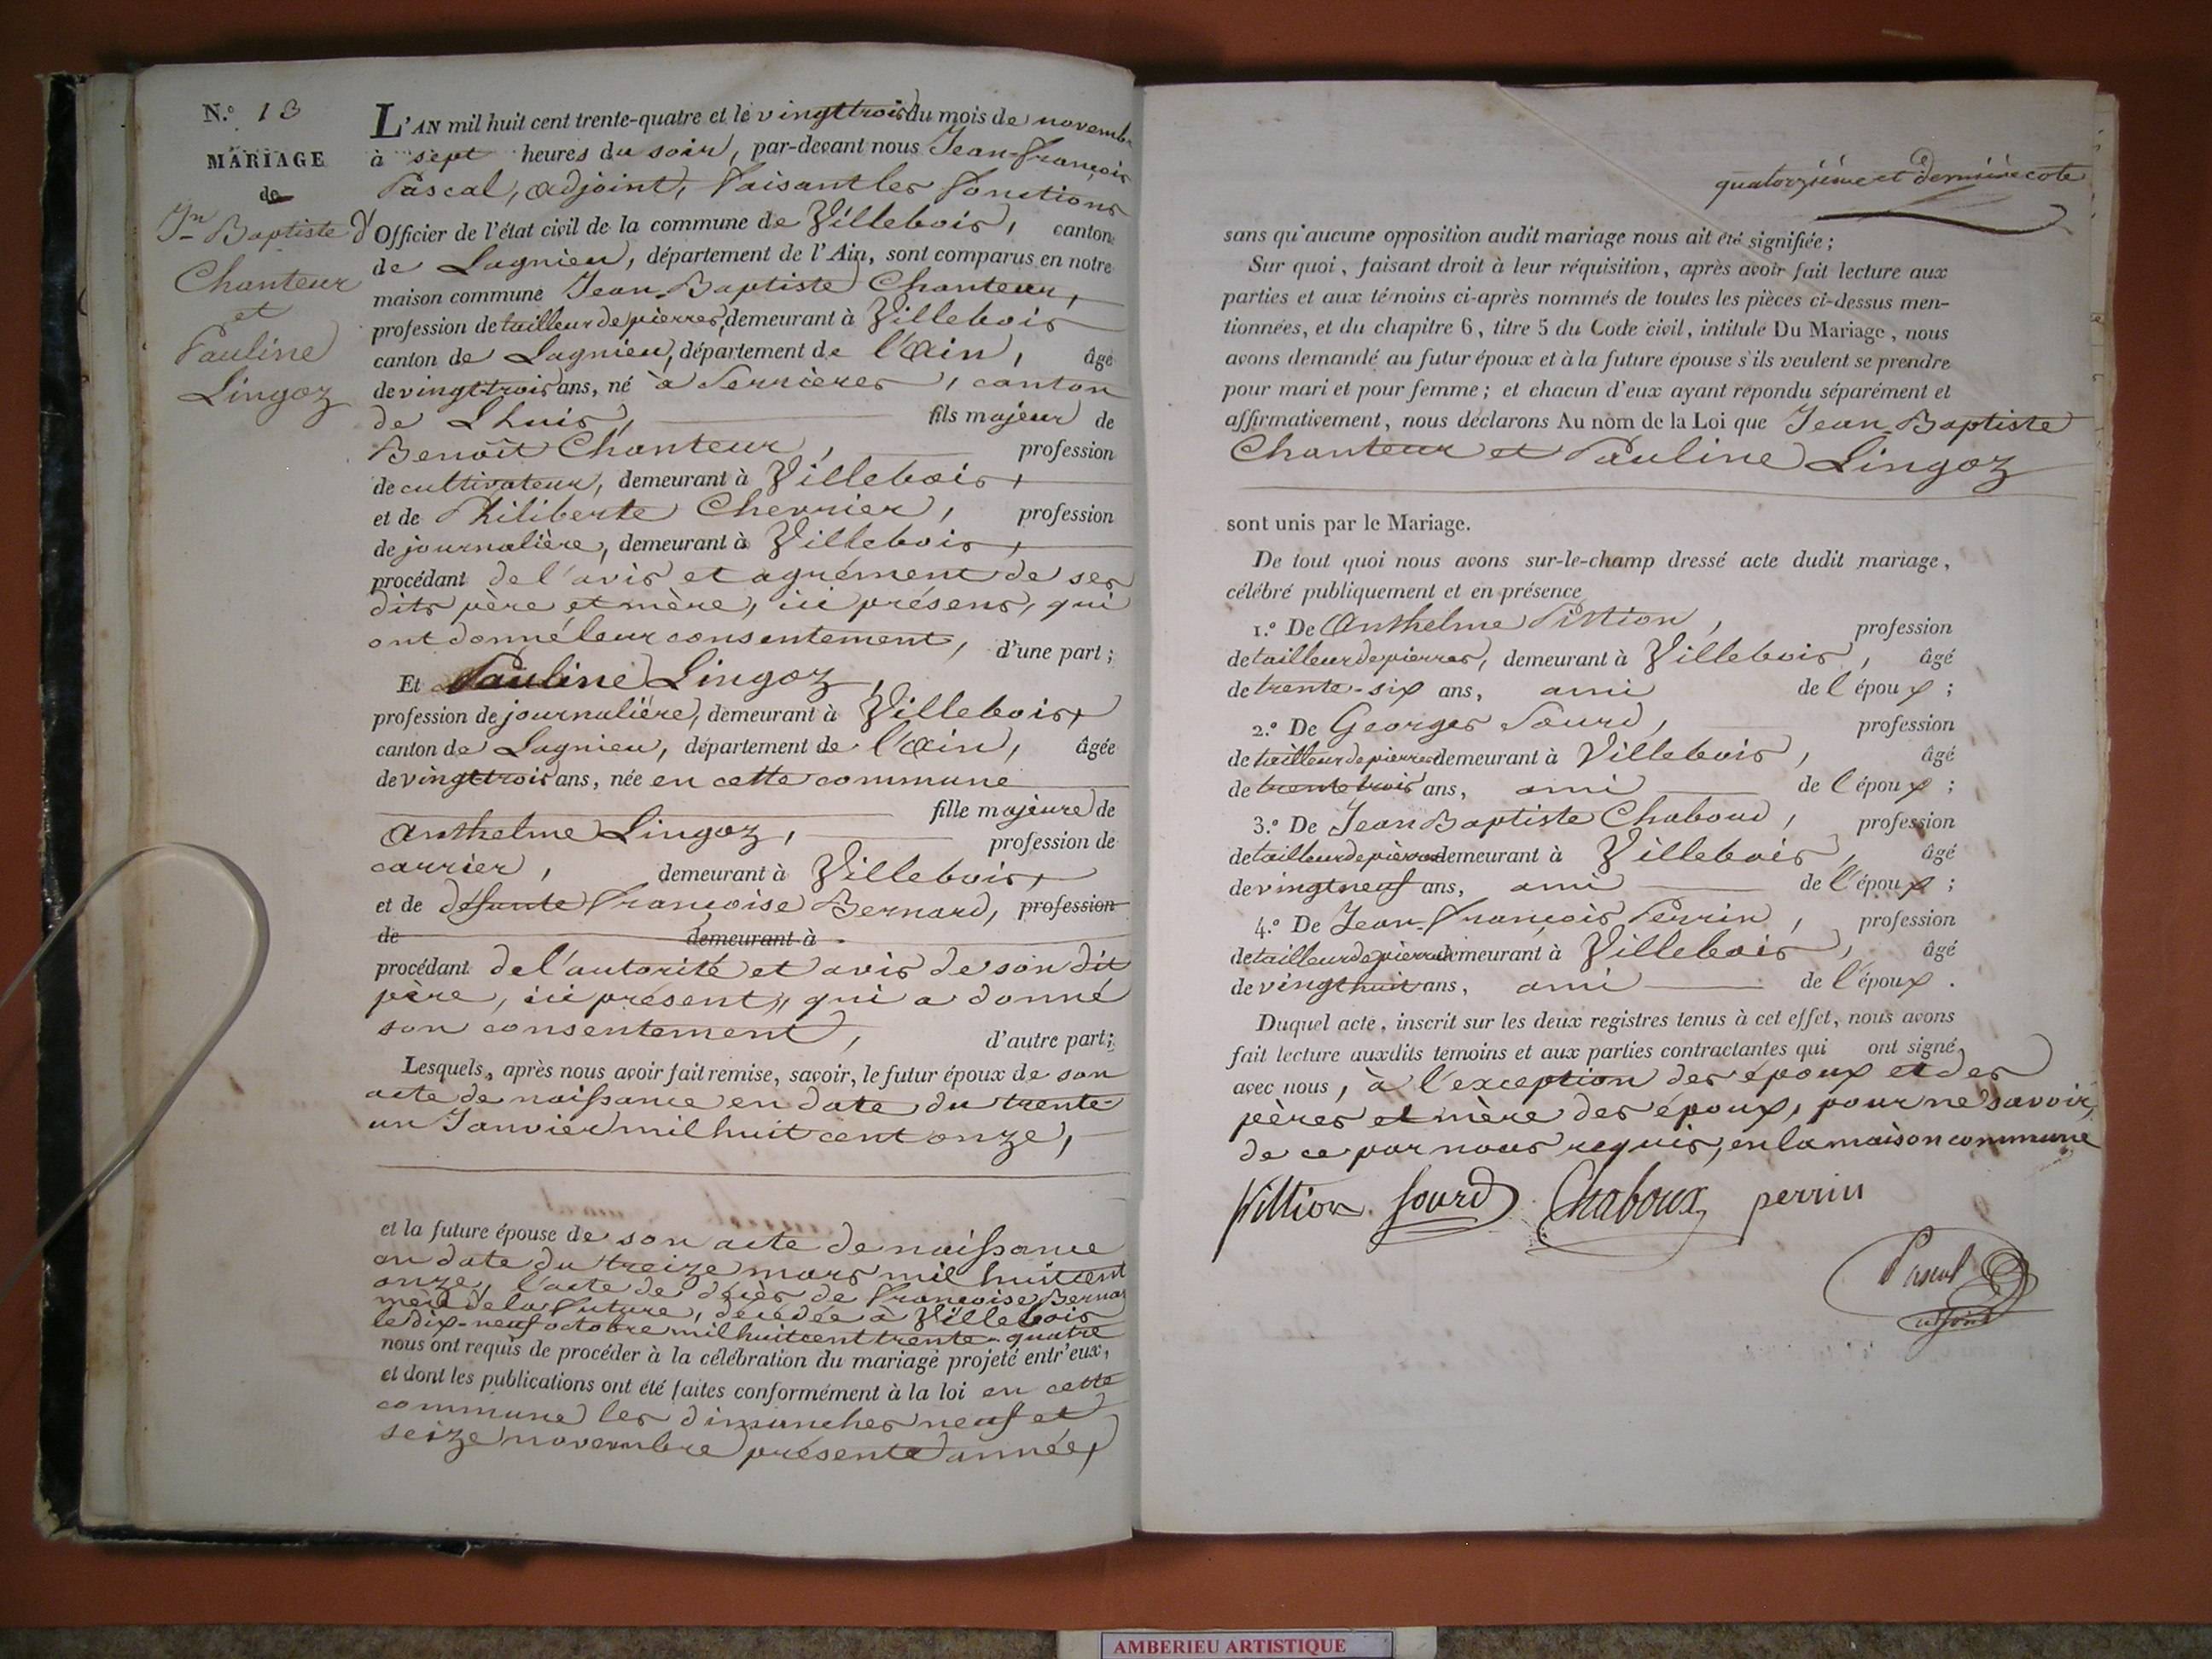 N.° 13
MARIAGE
de
Jn Baptiste
Chanteur
et
Pauline
Lingoz
L'AN mil huit cent trente-quatre et le vingt trois du mois de novembre
à sept heures du soir, par-devant nous Jean-François
Pascal, adjoint, faisant les fonctions
d'Officier de l'état civil de la commune de Villebois, canton
de Lagnieu, département de l'Ain, sont comparus en notre
maison commune Jean-Baptiste Chanteur,
profession de tailleur de pierres, demeurant à Villebois
canton de Lagnieu, département de l'Ain, âgé
de vingt trois ans, né à Serrières, canton
de Lhuis, fils majeur de
Benoît Chanteur, profession
de cultivateur, demeurant à Villebois,
et de Philiberte Chevrier, profession
de journalière, demeurant à Villebois,
procédant de l'avis et agrément de ses
dits père et mère, ici présens, qui
ont donné leur consentement, d'une part;
Et Pauline Lingoz,
profession de journalière, demeurant à Villebois,
canton de Lagnieu, département de l'Ain, âgée
de vingt trois ans, née en cette commune
fille majeure de
Anthelme Lingoz, profession de
carrier, demeurant à Villebois,
et de defunte Françoise Bernard, profession
de demeurant à
procédant de l'autorité et avis de son dit
père, ici présent, qui a donné
son consentement, d'autre part;
Lesquels, après nous avoir fait remise, savoir, le futur époux de son
acte de naissance en date du trente-
un Janvier mil huit cent onze,
et la future épouse de son acte de naissance
en date du treize mars mil huit cent
onze, l'acte de décès de Françoise Bernard
mère de la future, décédée à Villebois
le dix-neuf octobre mil huit cent trente-quatre
nous ont requis de procéder à la célébration du mariage projeté entr'eux,
et dont les publications ont été faites conformément à la loi en cette
commune les dimanches neuf et
seize novembre présente année,
quatorzième et dernière cote
sans qu'aucune opposition audit mariage nous ait été signifiée;
Sur quoi, faisant droit à leur réquisition, après avoir fait lecture aux
parties et aux témoins ci-après nommés de toutes les pièces ci-dessus men-
tionnées, et du chapitre 6, titre 5 du Code civil, intitulé Du Mariage, nous
avons demandé au futur époux et à la future épouse s'ils veulent se prendre
pour mari et pour femme; et chacun d'eux ayant répondu séparément et
affirmativement, nous déclarons Au nom de la Loi que Jean-Baptiste
Chanteur et Pauline Lingoz
sont unis par le Mariage.
De tout quoi nous avons sur-le-champ dressé acte dudit mariage,
célébré publiquement et en présence
1.° De Anthelme Pittion, profession
de tailleur de pierres, demeurant à Villebois, âgé
de trente-six ans, ami de l'époux;
2.° De Georges Sourd, profession
de tailleur de pierres demeurant à Villebois, âgé
de trente trois ans, ami de l'époux;
3.° De Jean Baptiste Chaboud, profession
de tailleur de pierres demeurant à Villebois, âgé
de vingt neuf ans, ami de l'époux;
4.° De Jean-François Perrin, profession
de tailleur de pierres demeurant à Villebois, âgé
de vingt huit ans, ami de l'époux.
Duquel acte, inscrit sur les deux registres tenus à cet effet, nous avons
fait lecture auxdits témoins et aux parties contractantes qui ont signé
avec nous, à l'exception des époux et des
pères et mère des époux, pour ne savoir,
de ce par nous requis, en la maison commune
Pittion Sourd Chaboux perrin
Pascal
adjoint
AMBERIEU ARTISTIQUE